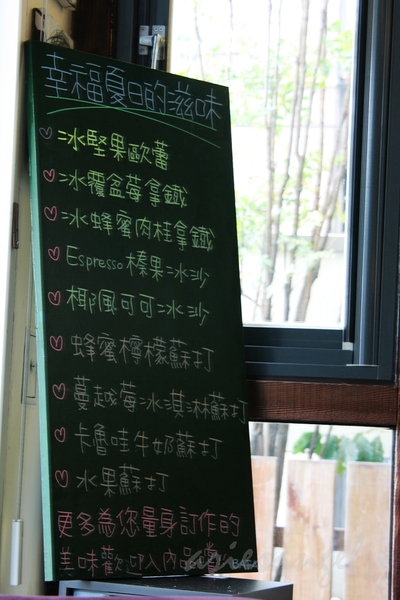 幸福夏日的滋味
冰堅果歐蕾
冰覆盆莓拿鐵
冰蜂蜜肉桂拿鐵
Espresso榛果冰沙
椰風可可冰沙
蜂蜜檸檬蘇打
蔓越莓冰淇淋蘇打
卡魯哇牛奶蘇打
水果蘇打
更多為您量身訂作的
美味歡迎入內品嚐